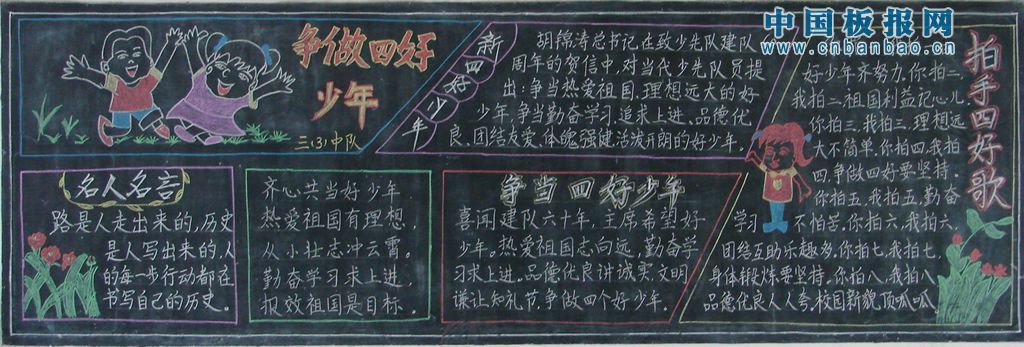 中国板报网
www.cnbanbao.cn
争做四好
少年
三(3)中队
新四好少年
胡锦涛总书记在致少先队建队
周年的贺信中,对当代少先队员提
出:争当热爱祖国,理想远大的好
少年,争当勤奋学习,追求上进、品德优
良、团结友爱、体魄强健,活泼开朗的好少年。
拍手四好歌
好少年齐努力,你拍二,
我拍二,祖国利益记心儿,
你拍三,我拍三,理想远
大不简单,你拍四,我拍
四,争做四好要坚持。
你拍五,我拍五,勤奋
学习不怕苦,你拍六,我拍六,
团结互助乐趣多,你拍七,我拍七,
身体锻炼要坚持,你拍八,我拍八
品德优良人人夸,校园新貌,顶呱呱,
名人名言
路是人走出来的,历史
是人写出来的,人
的每一步行动都在
书写自己的历史。
齐心共当好少年
热爱祖国有理想,
从小壮志冲云霄。
勤奋学习求上进,
报效祖国是目标。
争当四好少年
喜闻建队六十年,主席希望好
少年。热爱祖国志向远,勤奋学
习求上进,品德优良讲诚实,文明
谦让知礼节,争做四个好少年。